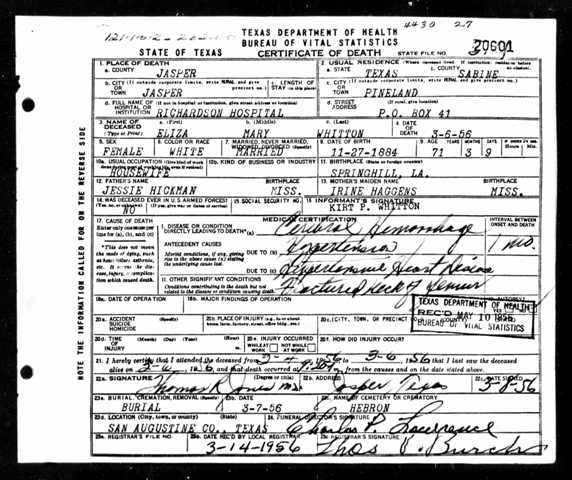 4430 27
TEXAS DEPARTMENT OF HEALTH
BUREAU OF VITAL STATISTICS
STATE OF TEXAS CERTIFICATE OF DEATH STATE FILE NO.
1. PLACE OF DEATH 2. USUAL RESIDENCE
a. COUNTY JASPER a. STATE TEXAS c. COUNTY SABINE
b. CITY OR TOWN JASPER c. LENGTH OF STAY c. CITY OR TOWN PINELAND
d. FULL NAME OF HOSPITAL OR INSTITUTION RICHARDSON HOSPITAL d. STREET ADDRESS P.O. BOX 41
3. NAME OF DECEASED (Type or Print) a. (First) ELIZA b. (Middle) MARY c. (Last) WHITTON 4. DATE OF DEATH 3-6-56
5. SEX FEMALE 6. COLOR OR RACE WHITE 7. MARRIED, NEVER MARRIED, WIDOWED, DIVORCED MARRIED 8. DATE OF BIRTH 11-27-1884 9. AGE YEARS 71 MONTHS 3 DAYS 9
10a. USUAL OCCUPATION HOUSEWIFE 10b. KIND OF BUSINESS OR INDUSTRY 11. BIRTHPLACE (State or foreign country) SPRINGHILL, LA.
12. FATHER'S NAME JESSIE HICKMAN BIRTHPLACE MISS. 13. MOTHER'S MAIDEN NAME IRINE HAGGENS BIRTHPLACE MISS.
14. WAS DECEASED EVER IN U.S. ARMED FORCES? NO 15. SOCIAL SECURITY NO. 16. INFORMANT'S SIGNATURE KIRT P. WHITTON
17. CAUSE OF DEATH MEDICAL CERTIFICATION INTERVAL BETWEEN ONSET AND DEATH
Enter only one cause per line for (a), (b), and (c)
I. DISEASE OR CONDITION DIRECTLY LEADING TO DEATH (a) Cerebral Hemorrhage 1 mo.
*This does not mean the mode of dying, such as heart failure, asthenia, etc. It means the disease, injury, or complication which caused death.
ANTECEDENT CAUSES
Morbid conditions, if any, giving rise to the above cause (a) stating the underlying cause last.
DUE TO (b) Hypertension
DUE TO (c) Hypertensive Heart Disease
II. OTHER SIGNIFICANT CONDITIONS Fractured neck of femur
Conditions contributing to the death but not related to the disease or condition causing death.
18a. DATE OF OPERATION 18b. MAJOR FINDINGS OF OPERATION
TEXAS DEPARTMENT OF HEALTH
REC'D MAY 10 1956
BUREAU OF VITAL STATISTICS
20a. ACCIDENT SUICIDE HOMICIDE 20b. PLACE OF INJURY 20c. CITY, TOWN, OR PRECINCT NO.
20d. TIME OF INJURY 20e. INJURY OCCURRED WHILE AT WORK NOT WHILE AT WORK 20f. HOW DID INJURY OCCUR?
21. I hereby certify that I attended the deceased from 3-4 1956 to 3-6 1956 that I last saw the deceased
alive on 3-6 1956 and that death occurred at from the causes and on the date stated above.
22a. SIGNATURE Thomas R Jones M.D. (Degree or title) 22b. ADDRESS Jasper Texas 22c. DATE SIGNED 3-8-56
23a. BURIAL, CREMATION, REMOVAL (Specify) BURIAL 23b. DATE 3-7-56 23c. NAME OF CEMETERY OR CREMATORY HEBRON
23d. LOCATION (City, town, or county) (State) SAN AUGUSTINE CO., TEXAS 24. FUNERAL DIRECTOR'S SIGNATURE Charles P. Lawrence
25a. REGISTRAR'S FILE NO. 25b. DATE REC'D BY LOCAL REGISTRAR 3-14-1956 25c. REGISTRAR'S SIGNATURE Thos Burch
NOTE THE INFORMATION CALLED FOR ON THE REVERSE SIDE